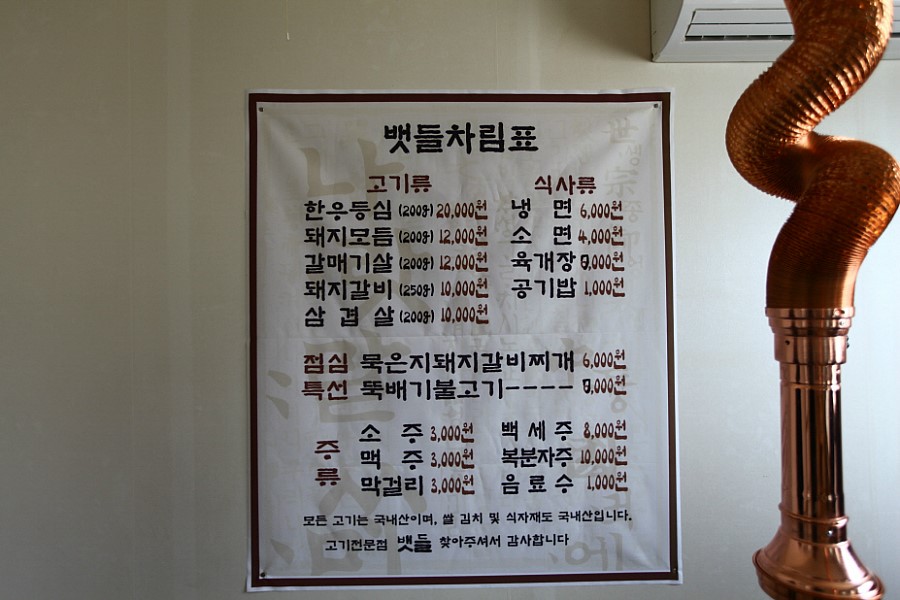 뱃들차림표
고기류
한우등심 (200g) 20,000원
돼지모듬 (200g) 12,000원
갈매기살 (200g) 12,000원
돼지갈비 (250g) 10,000원
삼 겹 살 (200g) 10,000원
식사류
냉 면 6,000원
소 면 4,000원
육개장
공기밥 1,000원
점심 특선
묵은지돼지갈비찌개 6,000원
뚝배기불고기----
주류
소 주 3,000원
맥 주 3,000원
막걸리 3,000원
백 세 주 8,000원
복분자주 10,000원
음 료 수 1,000원
모든 고기는 국내산이며, 쌀 김치 및 식자재도 국내산입니다.
고기전문점 뱃들 찾아주셔서 감사합니다